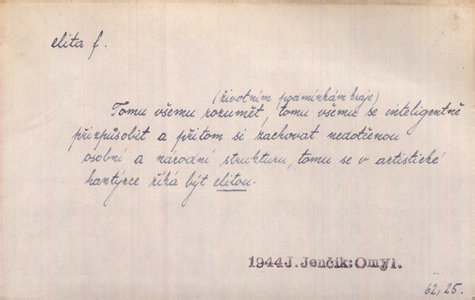 elita f.
(životním podmínkám kraje)
Tomu všemu rozumět, tomu všemu se inteligentně
přizpůsobit a přitom si zachovat nedotčenou
osobní a národní strukturu, tomu se v artistické
hantýrce říká být elitou.
1944 J. Jenčík: Omyl.
62, 25.